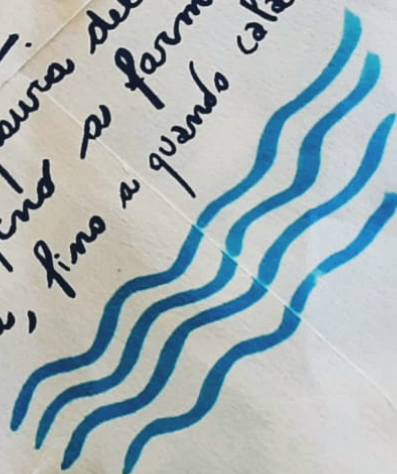 paura del
fino a farm
, fino a quando cala